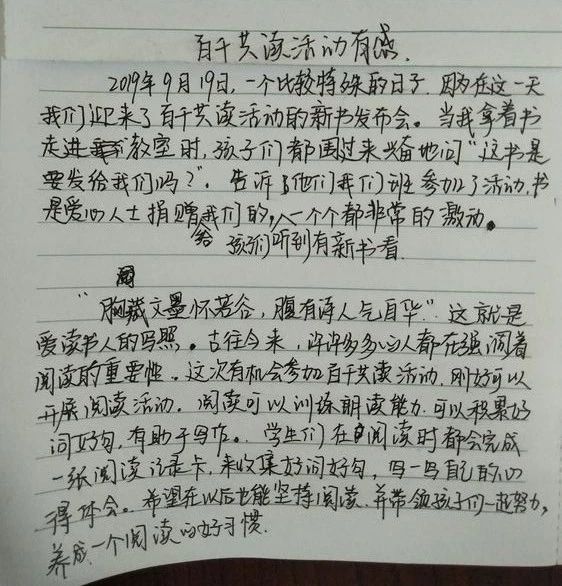 百千共读活动有感.
2019年9月19日,一个比较特殊的日子.因为在这一天
我们迎来了百千共读活动的新书发布会。当我拿着书
走进教室时,孩子们都围过来兴奋地问“这书是
要发给我们吗?”。告诉他们我们班参加了活动,书
是爱心人士捐赠给我们的,孩子们听到有新书看一个个都非常的激动。
“胸藏文墨怀若谷,腹有诗人气自华”.这就是
爱读书人的写照。古往今来,许许多多的人都在强调着
阅读的重要性。这次有机会参加百千共读活动.刚好可以
开展阅读活动.阅读可以训练朗读能力.可以积累好
词好句,有助于写作。.学生们在阅读时都会完成
一张阅读记录卡,来收集好词好句,写一写自己的心
得体会。希望在以后也能坚持阅读.并带领孩子们一起努力,
养成一个阅读的好习惯.